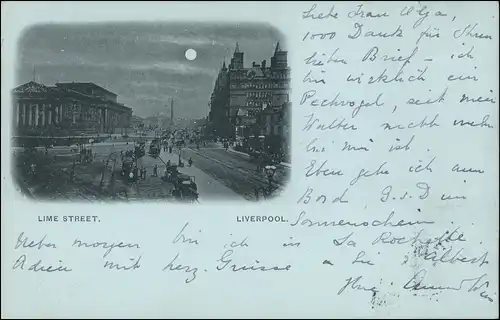 Liebe Frau Olga,
1000 Dank für Ihren
lieben Brief – ich
bin wirklich ein
Pechvogel, seit mein
Walter nicht mehr
bei mir ist.
Eben gehe ich am
Bord, G.s.D im
Sonnenschein.
LIME STREET. LIVERPOOL.
Ueber morgen bin ich in La Rochelle.
Adieu mit herz. Grüsse a Sie & Albert
Ihre